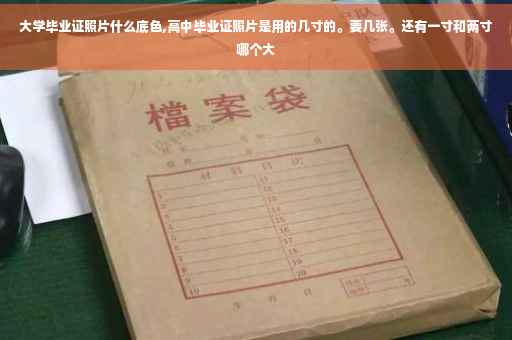 大学毕业证照片什么底色,高中毕业证照片是用的几寸的。要几张。还有一寸和两寸
哪个大
檔案袋
材料目次
1 11
2 12
3 13
4 14
5 15
6 16
7 17
8 18
9 19
10 20
年 月 日